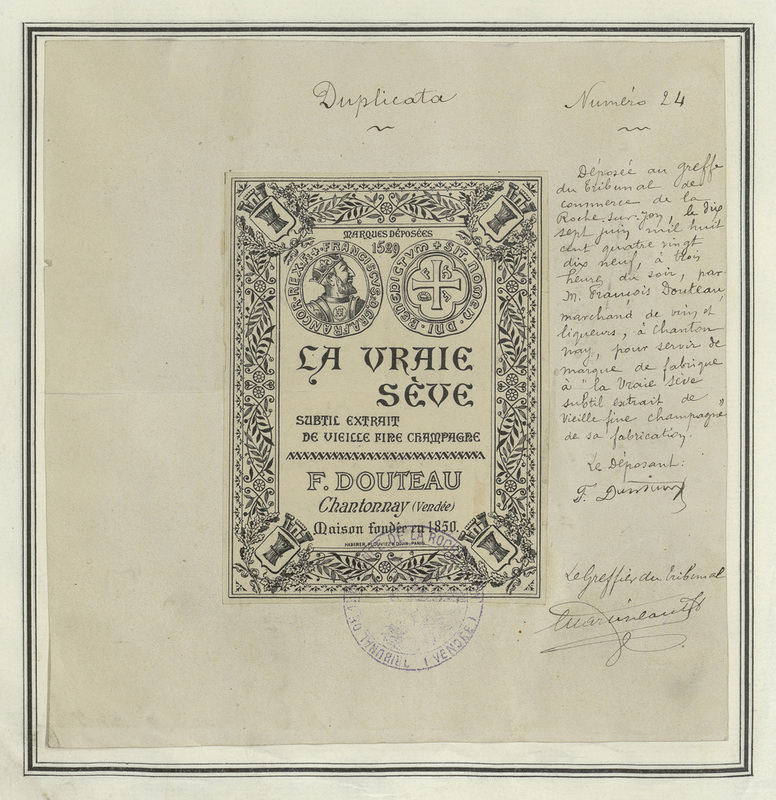 Duplicata
Numéro 24
MARQUES DÉPOSÉES
1529
FRANCISCVS D. GRA. FRANCOR. REX
SIT NOMEN DNI BENEDICTVM
LA VRAIE
SÈVE
SUBTIL EXTRAIT
DE VIEILLE FINE CHAMPAGNE
F. DOUTEAU
Chantonnay (Vendée)
Maison fondée en 1850.
Déposée au greffe
du Tribunal de
commerce de la
Roche-sur-Yon, le dix
sept juin mil huit
cent quatre vingt
dix neuf, à trois
heure du soir, par
M. François Douteau,
marchand de vins et
liqueurs, à Chanton
nay, pour servir de
marque de fabrique
à "la Vraie Sève
subtil extrait de
Vieille fine champagne"
de sa fabrication.
Le Déposant:
Le Greffier du Tribunal
TRIBUNAL DE
DE LA ROCHE
(VENDÉE)